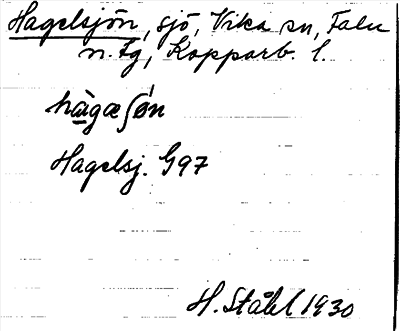 Hagelsjön, sjö, Vika sn, Falu
n. tg, Kopparb. l.
hàgæʃø̀n
Hagelsj. G97
H. Ståhl 1930